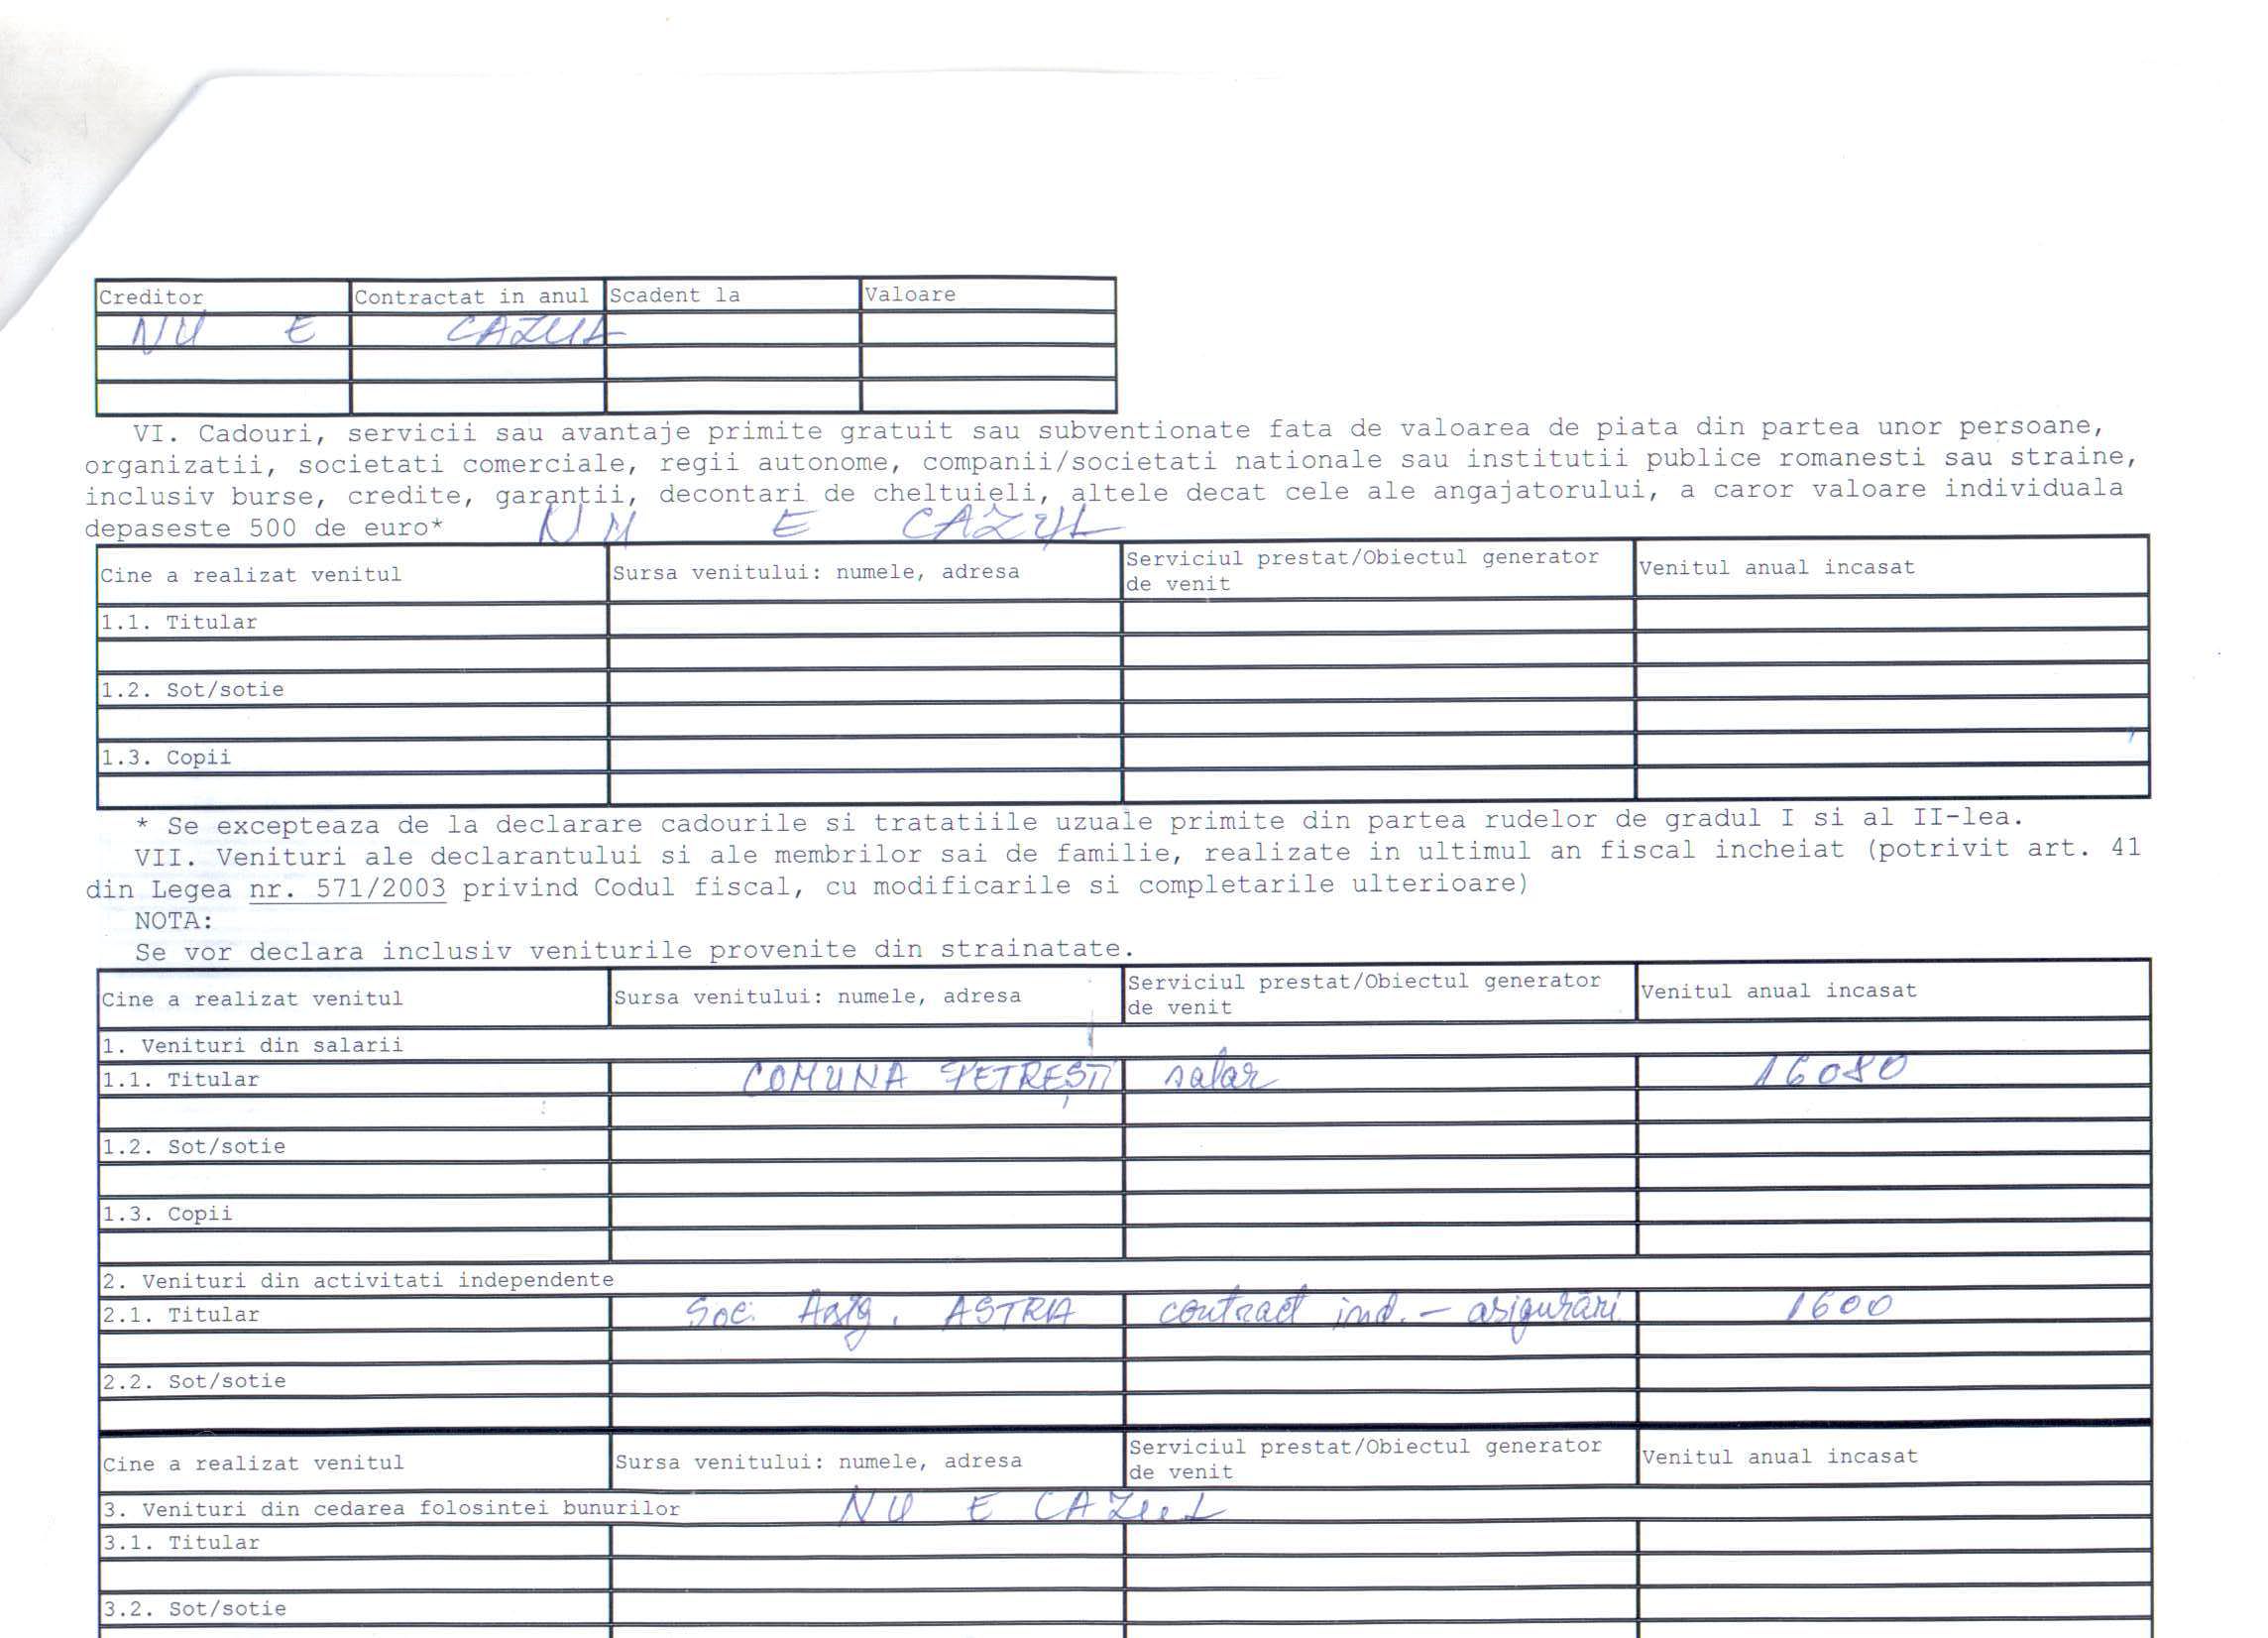 Creditor Contractat in anul Scadent la Valoare
NU E CAZUL
VI. Cadouri, servicii sau avantaje primite gratuit sau subventionate fata de valoarea de piata din partea unor persoane,
organizatii, societati comerciale, regii autonome, companii/societati nationale sau institutii publice romanesti sau straine,
inclusiv burse, credite, garantii, decontari de cheltuieli, altele decat cele ale angajatorului, a caror valoare individuala
depaseste 500 de euro* NU E CAZUL
Cine a realizat venitul Sursa venitului: numele, adresa Serviciul prestat/Obiectul generator de venit Venitul anual incasat
1.1. Titular
1.2. Sot/sotie
1.3. Copii
* Se excepteaza de la declarare cadourile si tratatiile uzuale primite din partea rudelor de gradul I si al II-lea.
VII. Venituri ale declarantului si ale membrilor sai de familie, realizate in ultimul an fiscal incheiat (potrivit art. 41
din Legea nr. 571/2003 privind Codul fiscal, cu modificarile si completarile ulterioare)
NOTA:
Se vor declara inclusiv veniturile provenite din strainatate.
Cine a realizat venitul Sursa venitului: numele, adresa Serviciul prestat/Obiectul generator de venit Venitul anual incasat
1. Venituri din salarii
1.1. Titular COMUNA PETREȘTI salar 16080
1.2. Sot/sotie
1.3. Copii
2. Venituri din activitati independente
2.1. Titular Soc. Asig. ASTRA contract ind. - asigurări 1600
2.2. Sot/sotie
Cine a realizat venitul Sursa venitului: numele, adresa Serviciul prestat/Obiectul generator de venit Venitul anual incasat
3. Venituri din cedarea folosintei bunurilor NU E CAZUL
3.1. Titular
3.2. Sot/sotie